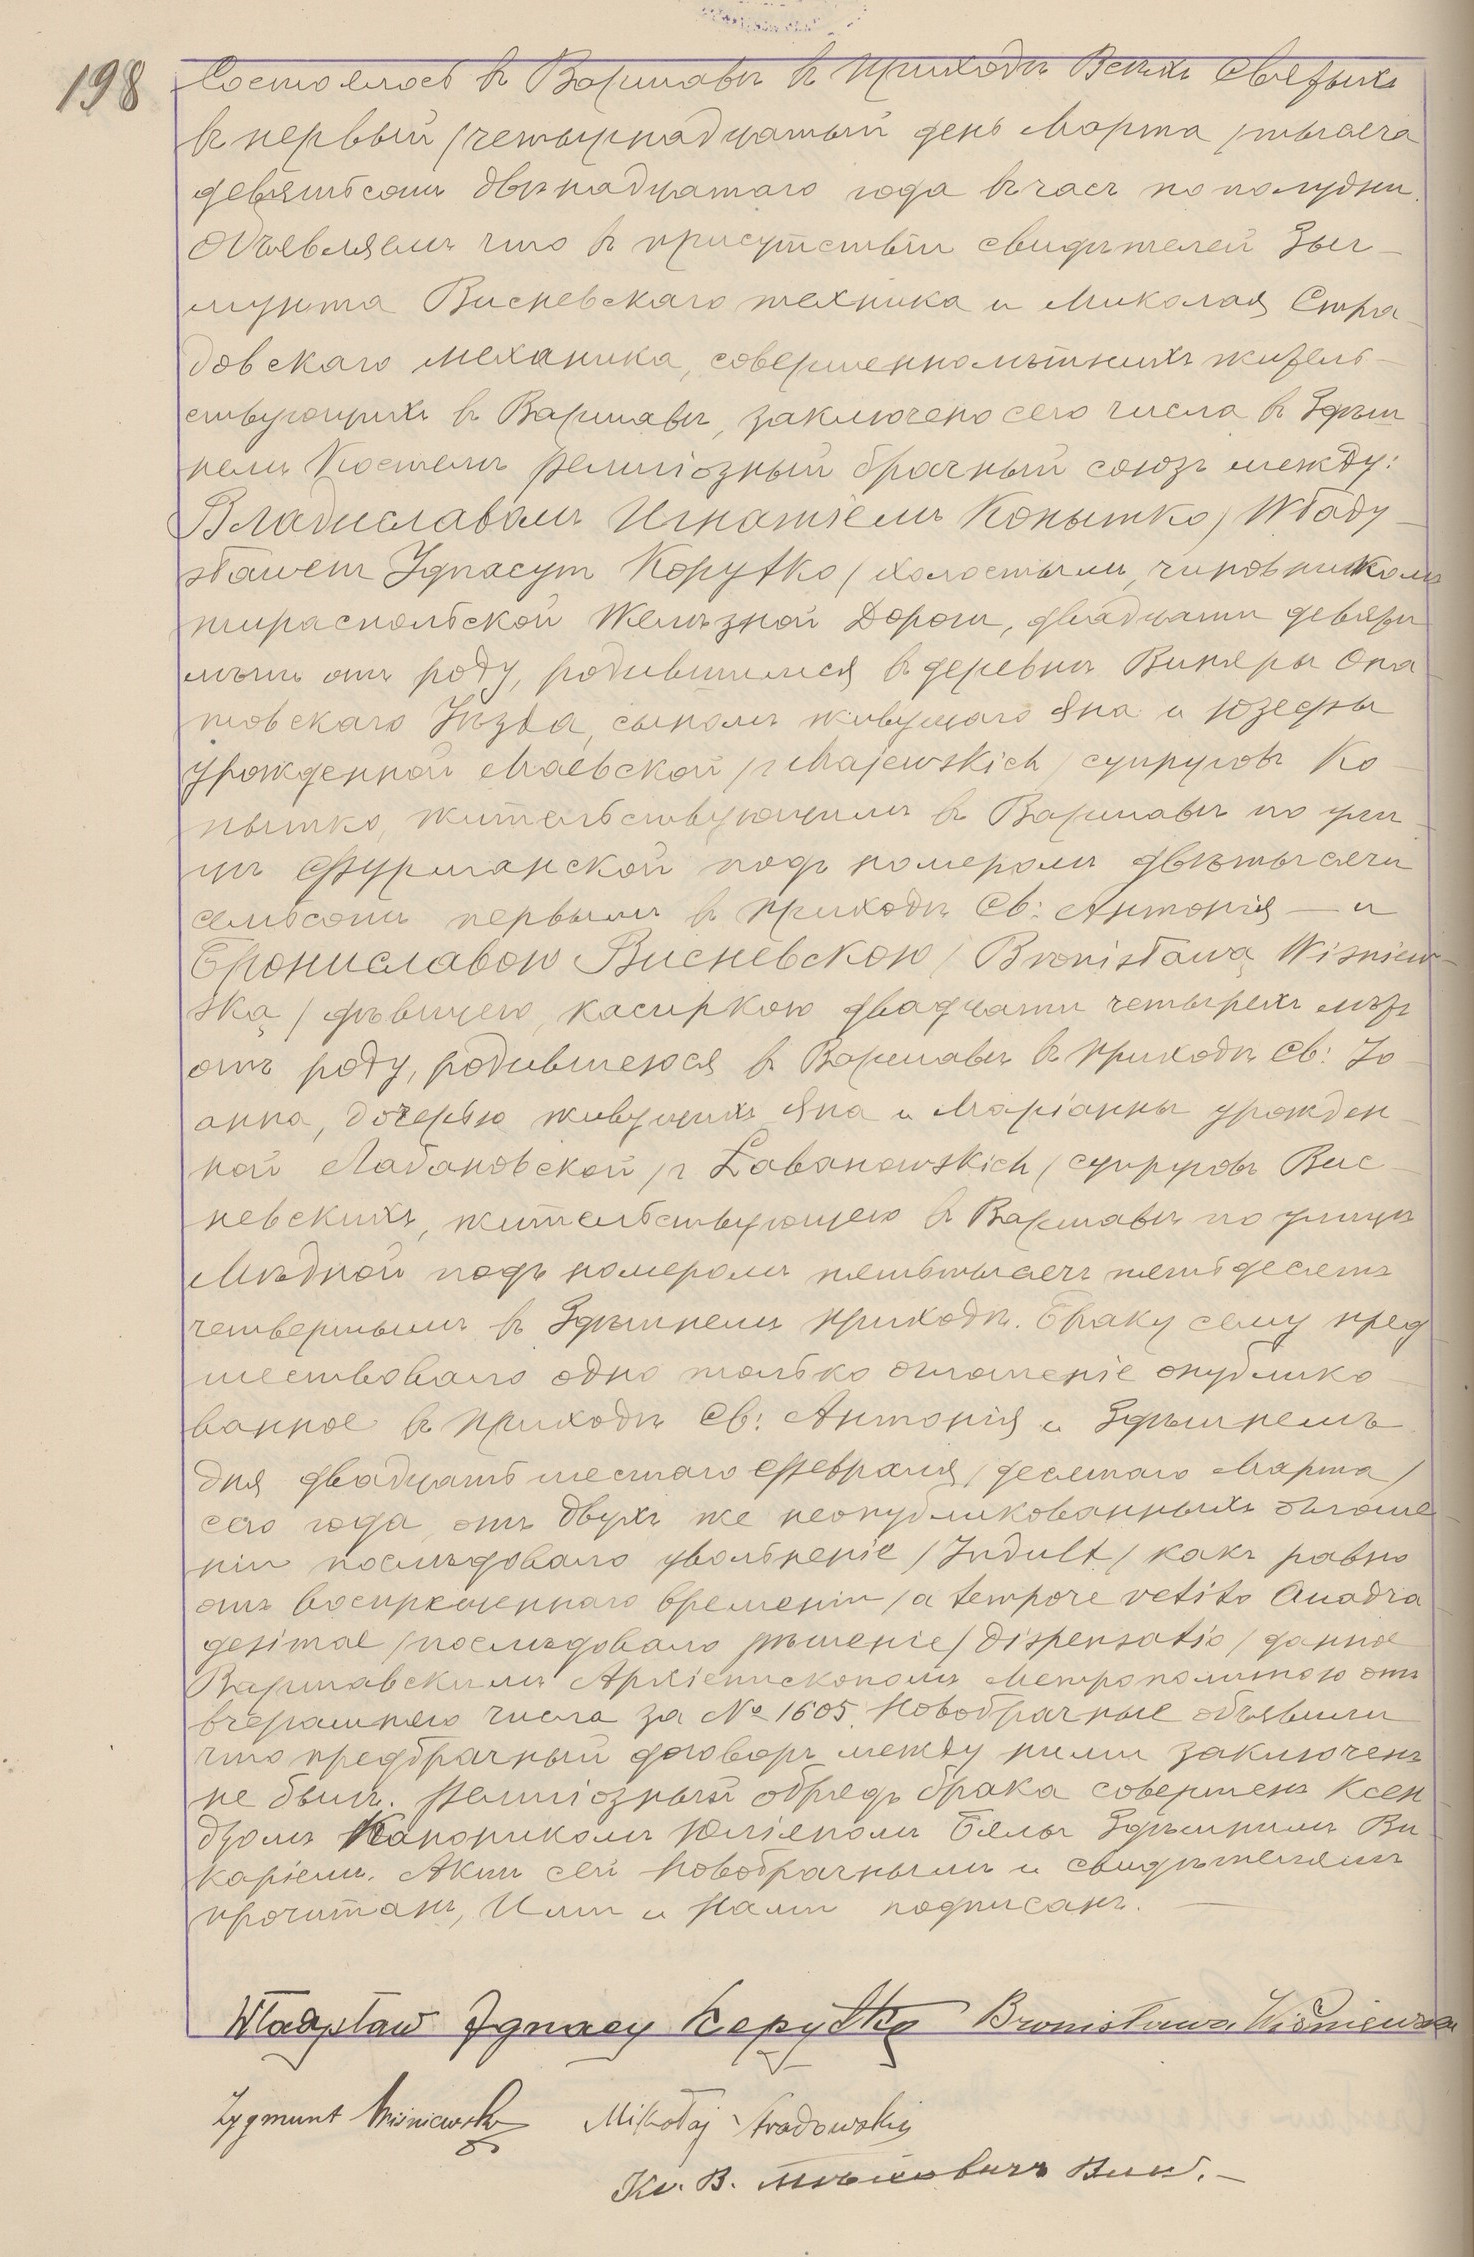 198
Состоялось въ Варшавѣ въ приходѣ Всѣхъ Святыхъ
въ первый /четырнадцатый день Марта /тысяча
девятьсотъ двѣнадцатаго года въ часъ по полудни.
Объявляемъ что въ присутствіи свидѣтелей Зыг-
мунта Висневскаго техника и Миколая Стра-
довскаго механика, совершеннолѣтнихъ житель-
ствующихъ въ Варшавѣ, заключено сего числа въ Здѣш
немъ Костелѣ религіозный брачный союзъ между:
Владиславомъ Игнатіемъ Копытко / Włady-
sławem Ignacym Kopytko / холостымъ, чиновникомъ
тираспольской Желѣзной Дороги, двадцати девяти
лѣтъ отъ роду, родившимся въ деревнѣ Виняры Опа-
товскаго Уѣзда, сыномъ живущаго Яна и Юзефы
урожденной Маевской /z Majewskich / супруговъ Ко-
пытко, жительствующимъ въ Варшавѣ по ули-
цѣ Фурманской подъ номеромъ двѣ тысячи
семьсотъ первымъ въ приходѣ Св: Антонія — и
Брониславою Висневскою / Bronisławą Wiśniew-
ską / дѣвицею, касиркою двадцати четырехъ лѣтъ
отъ роду, родившеюся въ Варшавѣ въ приходѣ Св: Іо-
анна, дочерью живущихъ Яна и Маріанны урожден-
ной Лабановской /z Łabanowskich / супруговъ Вис-
невскихъ, жительствующею въ Варшавѣ по улицѣ
Мѣдной подъ номеромъ пять тысячъ пятьдесятъ
четвертымъ въ Здѣшнемъ приходѣ. Браку сему пред
шествовало одно только оглашеніе опублико-
ванное въ приходѣ Св: Антонія и Здѣшнемъ
дня двадцать шестаго Февраля /десятаго Марта /
сего года, отъ двухъ же неопубликованныхъ оглаше-
ній послѣдовало увольненіе / Indult / какъ равно
отъ воспрещеннаго времени / a tempore vetito Quadra
gesimae / послѣдовало рѣшеніе / dispensatio / данное
Варшавскимъ Архіепископомъ Метрополитою отъ
вчерашняго числа за № 1605. Новобрачные объявили
что предбрачный договоръ между ними заключенъ
не былъ. Религіозный обрядъ брака совершенъ Ксен-
дзомъ Каноникомъ Юліаномъ Бялы Здѣшнимъ Ви-
каріемъ. Актъ сей Новобрачнымъ и свидѣтелямъ
прочитанъ, Ими и Нами подписанъ.
Władysław Ignacy Kopytko Bronisława Wiśniewska
Zygmunt Wiśniewski Mikołaj Stradowski
Кс. В.